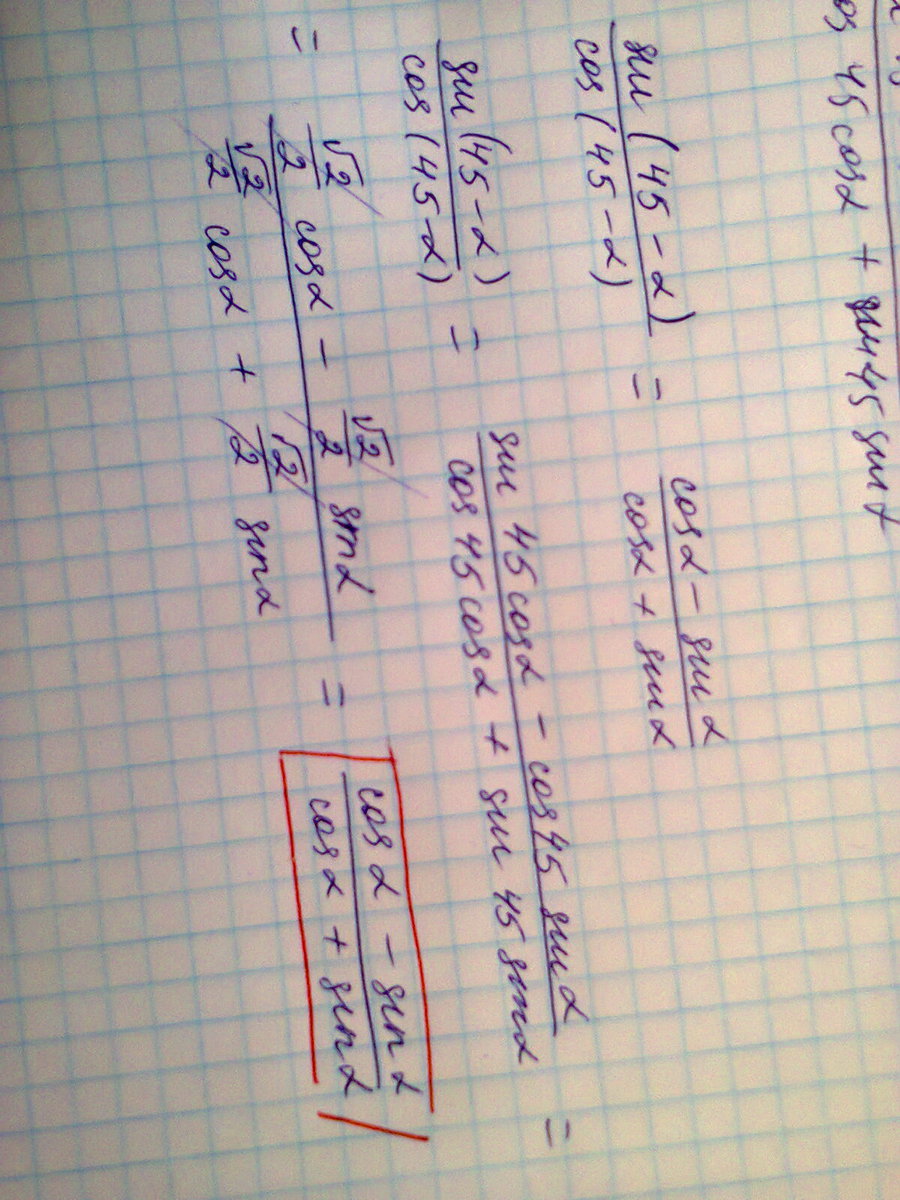 cos 45 cos α + sin 45 sin α
sin (45 - α) / cos (45 - α) = cos α - sin α / cos α + sin α
sin (45 - α) / cos (45 - α) = sin 45 cos α - cos 45 sin α / cos 45 cos α + sin 45 sin α =
= √2/2 cos α - √2/2 sin α / √2/2 cos α + √2/2 sin α = cos α - sin α / cos α + sin α